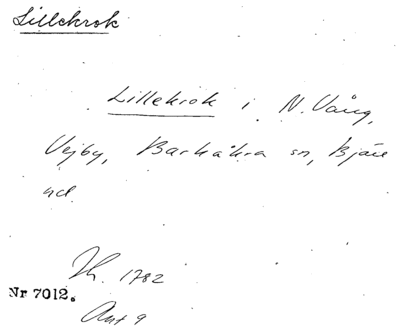 Lillekrok
Lillekrok i N. Vång,
Vejby, Barkåkra sn, Bjäre
hd.
Jh. 1782
Nr 7012.
Akt 9